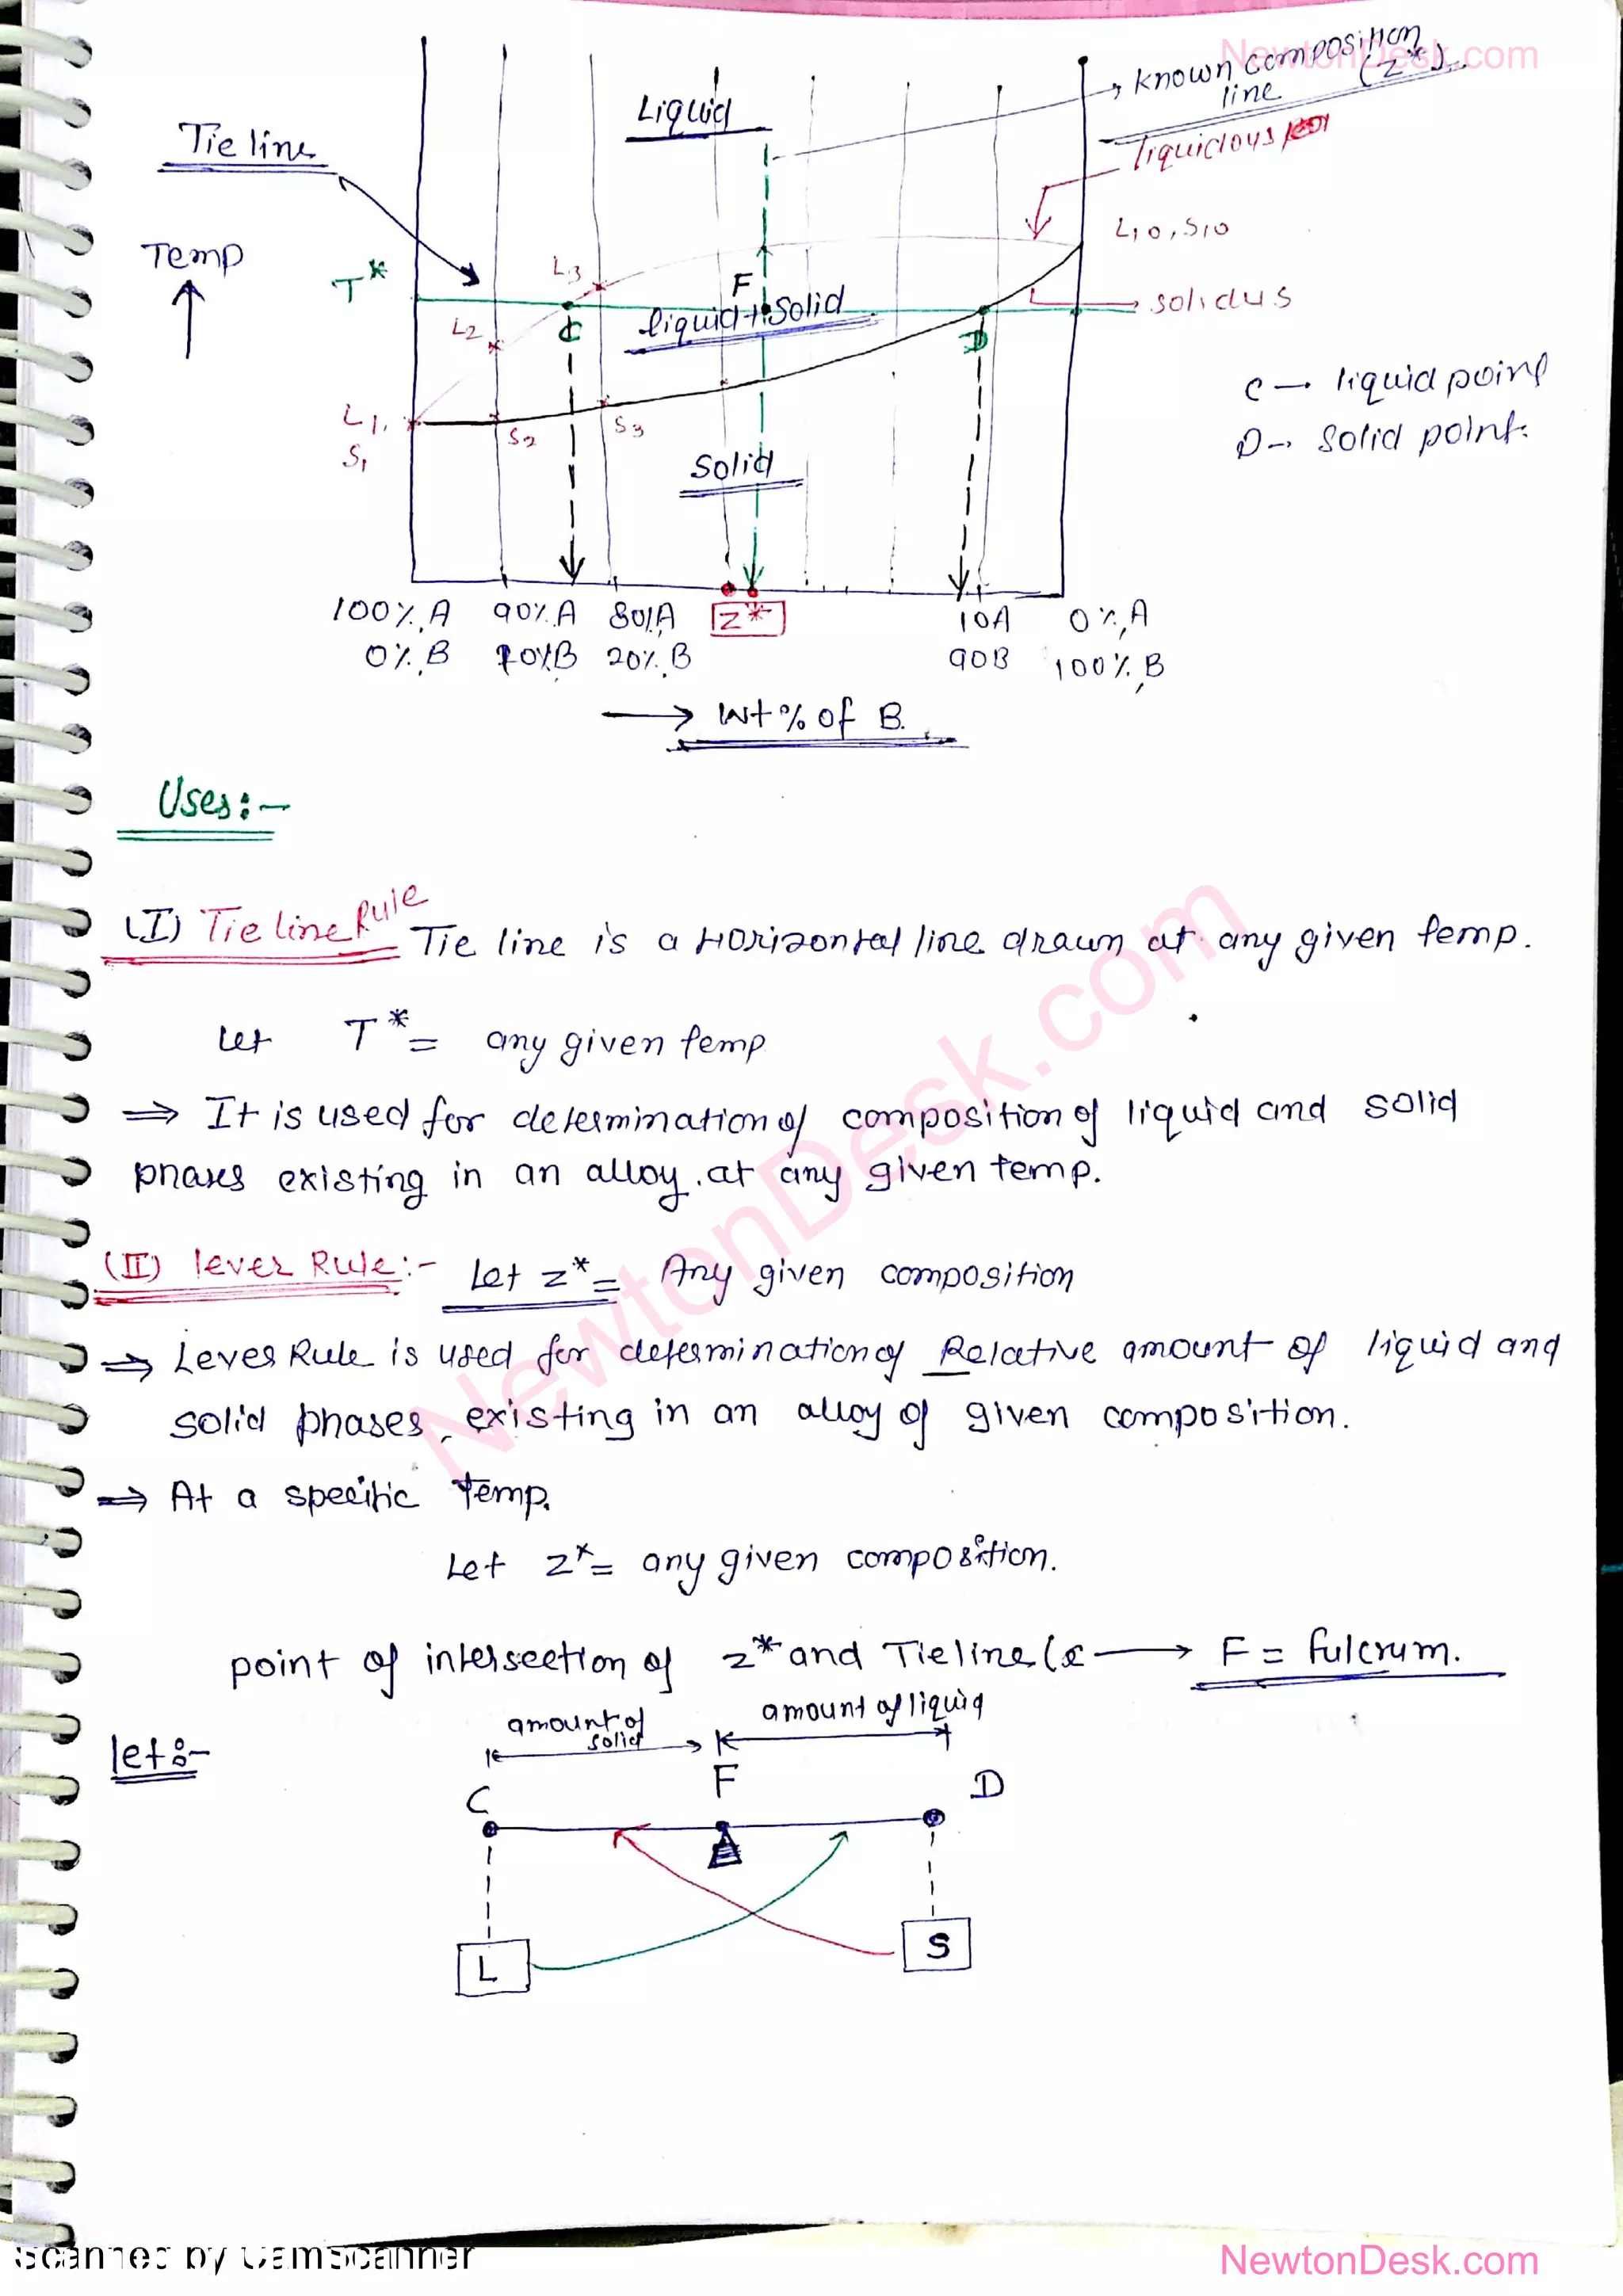 NewtonDesk.com
Known composition
line (Z*)
Liquid
Tie line
liquidous
L10, S10
Temp
T*
L3
F
Solidus
L2
C
liquid + Solid
D
C → liquid point
D → Solid point
L1,
S1
S2
S3
Solid
100% A 90% A 80% A Z* 10A 0% A
0% B 10% B 20% B 90B 100% B
→ Wt % of B
Uses:-
(I) Tie line Rule Tie line is a Horizontal line drawn at any given temp.
Let T* = any given temp
⇒ It is used for determination of composition of liquid and solid
phases existing in an alloy at any given temp.
(II) lever Rule:- Let Z* = Any given composition
⇒ Lever Rule is used for determination of Relative amount of liquid and
solid phases existing in an alloy of given composition.
⇒ At a specific temp.
Let Z* = any given composition.
point of intersection of Z* and Tie line ( → F = fulcrum.
let:-
amount of solid
amount of liquid
C F D
L S
NewtonDesk.com
Scanned by CamScanner
NewtonDesk.com